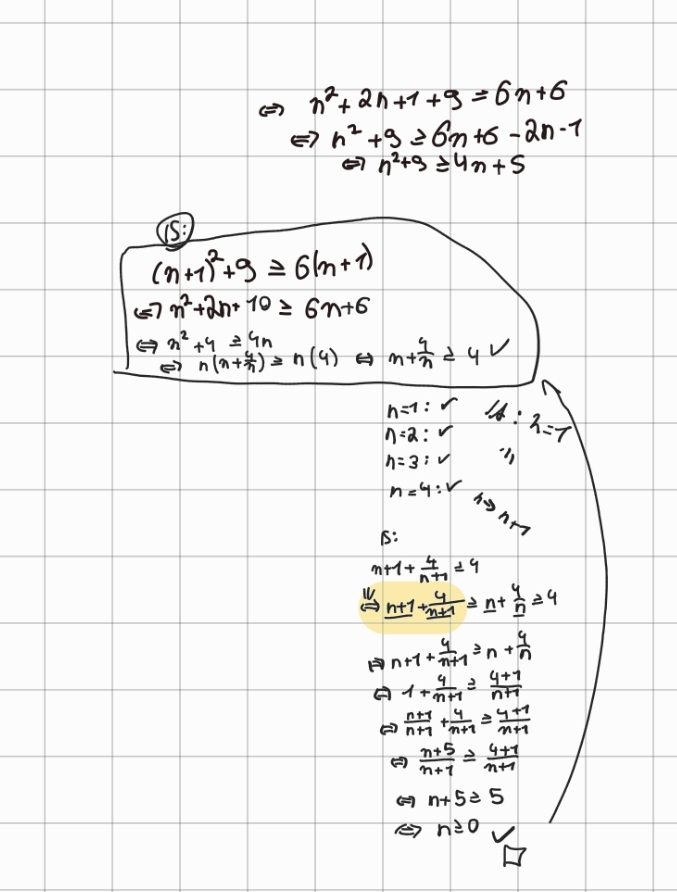 ⇔ n²+2n+1+9 ≥ 6n+6
⇔ n²+9 ≥ 6n+6-2n-1
⇔ n²+9 ≥ 4n+5
IS:
(n+1)²+9 ≥ 6(n+1)
⇔ n²+2n+10 ≥ 6n+6
⇔ n²+4 ≥ 4n
⇔ n(n+4/n) ≥ n(4) ⇔ n+4/n ≥ 4 ✓
n=1: ✓ IA: n=1
n=2: ✓
n=3: ✓
n=4: ✓ n→n+1
IS:
n+1+4/(n+1) ≥ 4
IV
⇔ n+1+4/(n+1) ≥ n+4/n ≥ 4
⇔ n+1+4/(n+1) ≥ n+4/n
⇔ 1+4/(n+1) ≥ (4+1)/(n+1)
⇔ (n+1)/(n+1)+4/(n+1) ≥ (4+1)/(n+1)
⇔ (n+5)/(n+1) ≥ (4+1)/(n+1)
⇔ n+5 ≥ 5
⇔ n≥0 ✓
□